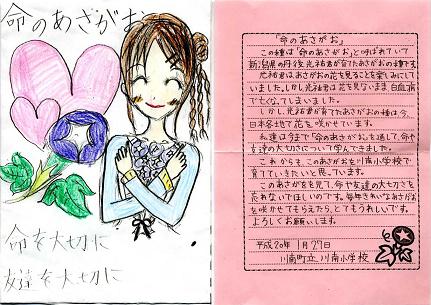 命のあさがお
命を大切に
友達を大切に
「命のあさがお」
この種は「命のあさがお」と呼ばれていて
新潟県の丹後光祐君が育てたあさがおの種です。
光祐君はあさがおの花を見ることを楽しみにして
いました。しかし光祐君は花を見ないまま白血病
で亡くなってしまいました。
しかし光祐君が育てたあさがおの種は今、
日本各地で花を咲かせています。
私達は今まで「命のあさがお」を通して、命や
友達の大切さについて学んできました。
これからも、このあさがおを川南小学校で
育てていきたいと思っています。
このあさがおを見て、命や友達の大切さを
忘れないでほしいのです。毎年きれいなあさがお
を咲かせてもらえたら、とてもうれしいです。
よろしくお願いします。
平成20年1月27日
川南町立川南小学校